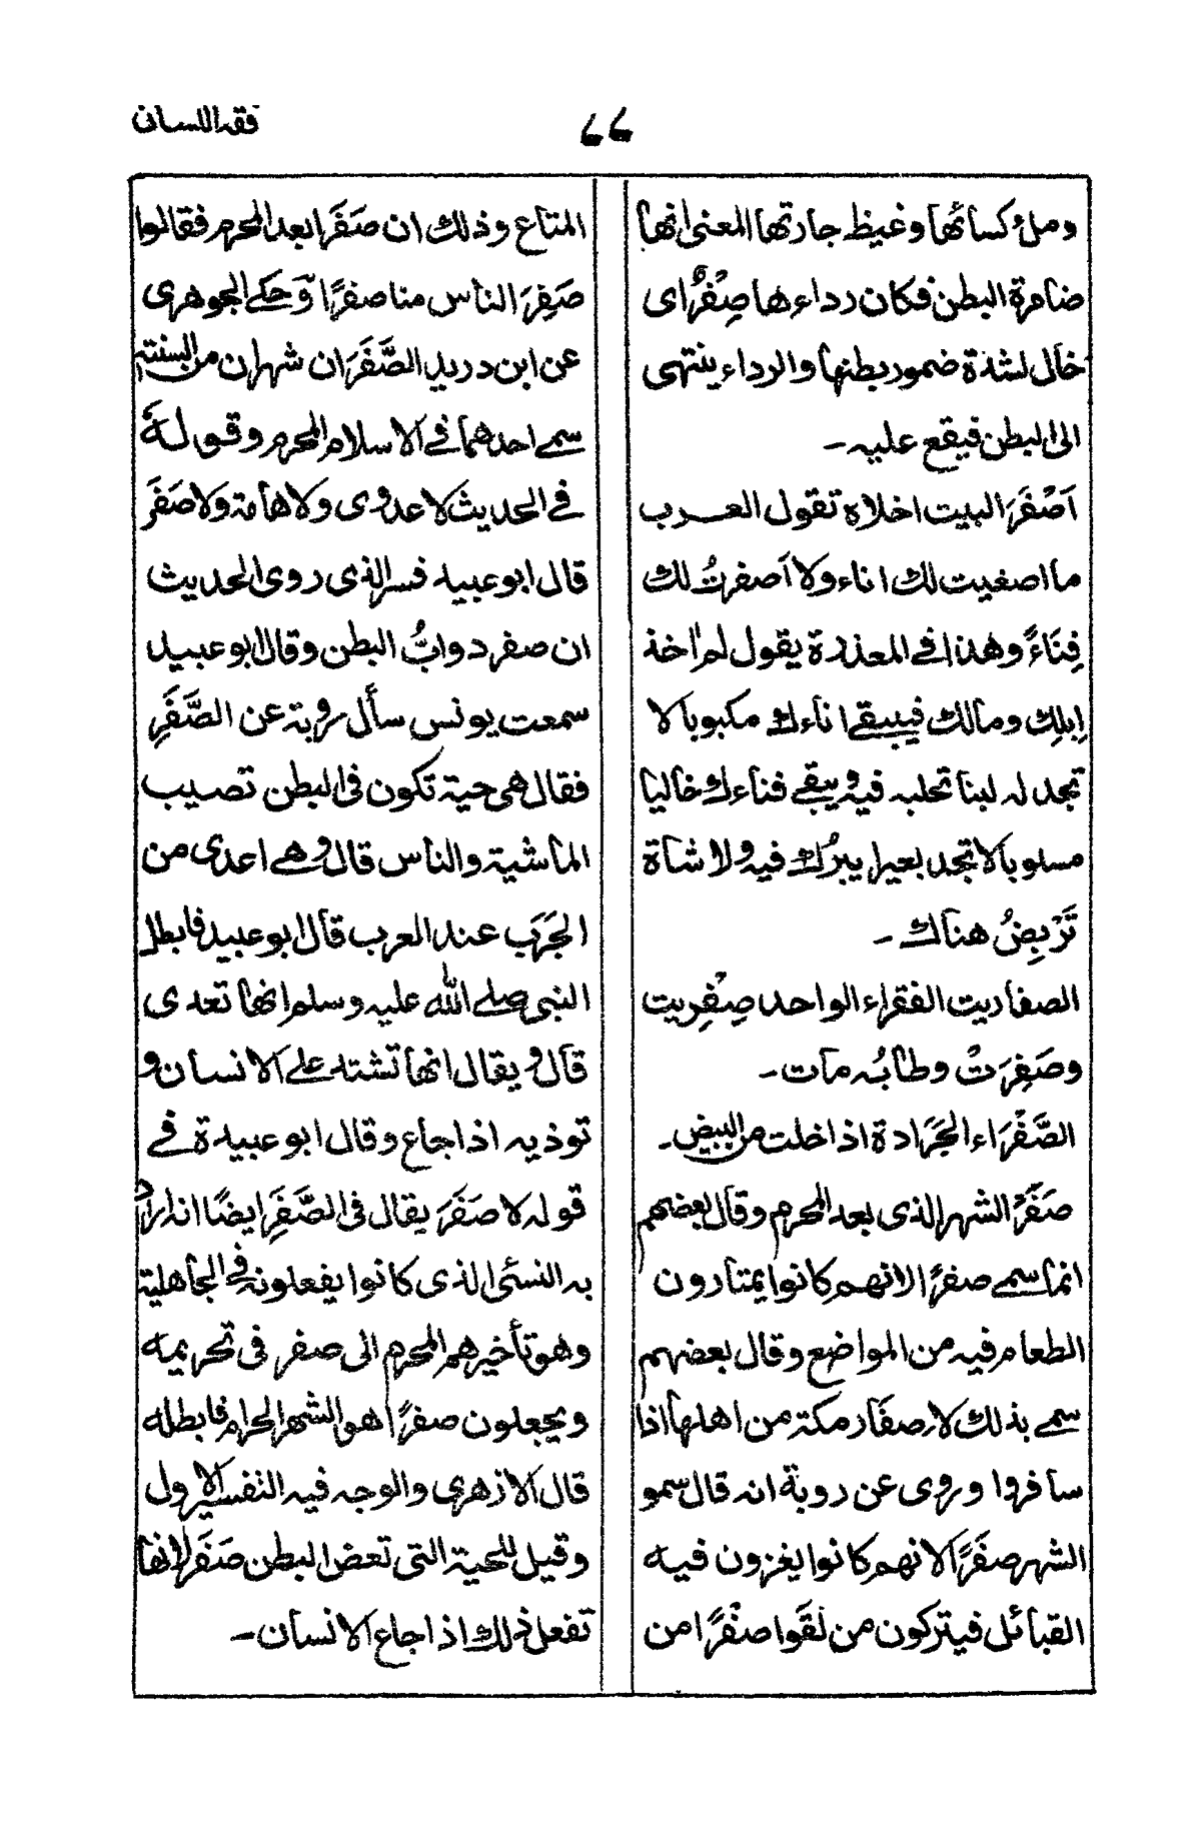 فقه اللسان
۷۷
وملؤ كسائها وغيظ جارتها المعنى انها
ضامرة البطن فكان رداءها صِفْرٌ اى
خال لشدة ضمور بطنها والرداء ينتهى
الى البطن فيقع عليه -
اَصْفَرَ البيت اخلاه تقول العرب
ما اصغيت لك اناء ولا اَصفرتُ لك
فِنَاءً وهذا فى المعذرة يقول لم اٰخذ
اِبلِك ومالك فيبقى اناءك مكبوبا لا
تجد له لبنا تحلبه فيه ويبقى فناءك خاليا
مسلوبا لا تجد بعيرا يبرُك فيه ولا شاة
تَرْبِضُ هناك -
الصفاريت الفقراء الواحد صِفْرِيت
وصَفِرَتْ وطابُه مات -
الصَّفْرَاء الجَرَادة اذا خلت من البيض -
صَفَرٌ الشهر الذى بعد المحرم وقال بعضهم
انما سمى صفرًا لانهم كانوا يمتارون
الطعام فيه من المواضع وقال بعضهم
سمى بذلك لاصفار مكة من اهلها اذا
سافروا وروى عن روبة انه قال سمو
الشهر صفَرًا لانهم كانوا يغزون فيه
القبائل فيتركون من لقَوا صفْرًا من
المتاع وذلك ان صَفَرَا بعد المحرم فقالوا
صَفِرَ الناس منا صفرًا وحكى الجوهرى
عن ابن دريد الصَّفَرَان شهران من السنة
سمى احدهما فى الاسلام المحرم وقوله
فى الحديث لا عدوٰى ولا هامة ولا صَفَرَ
قال ابو عبيد فسر الذى روى الحديث
ان صفر دوابُّ البطن وقال ابو عبيد
سمعت يونس سأل روبة عن الصَّفَرِ
فقال هى حية تكون فى البطن تصيب
الماشية والناس قال وهى اعدى من
الجَرَب عند العرب قال ابو عبيد فابطل
النبى صلى الله عليه وسلم انها تعدى
قال ويقال انها تشتد على الانسان و
توذيه اذا جاع وقال ابو عبيدة فى
قوله لا صَفَرَ يقال فى الصَّفَرِ ايضًا انه اراد
به النسئى الذى كانوا يفعلونه فى الجاهلية
وهو تأخيرهم المحرم الى صفر فى تحريمه
ويجعلون صفرًا هو الشهر الحرام فابطله
قال الازهرى والوجه فيه التفسير الاول
وقيل للحية التى تعض البطن صَفَر لانها
تفعل ذلك اذا جاع الانسان -